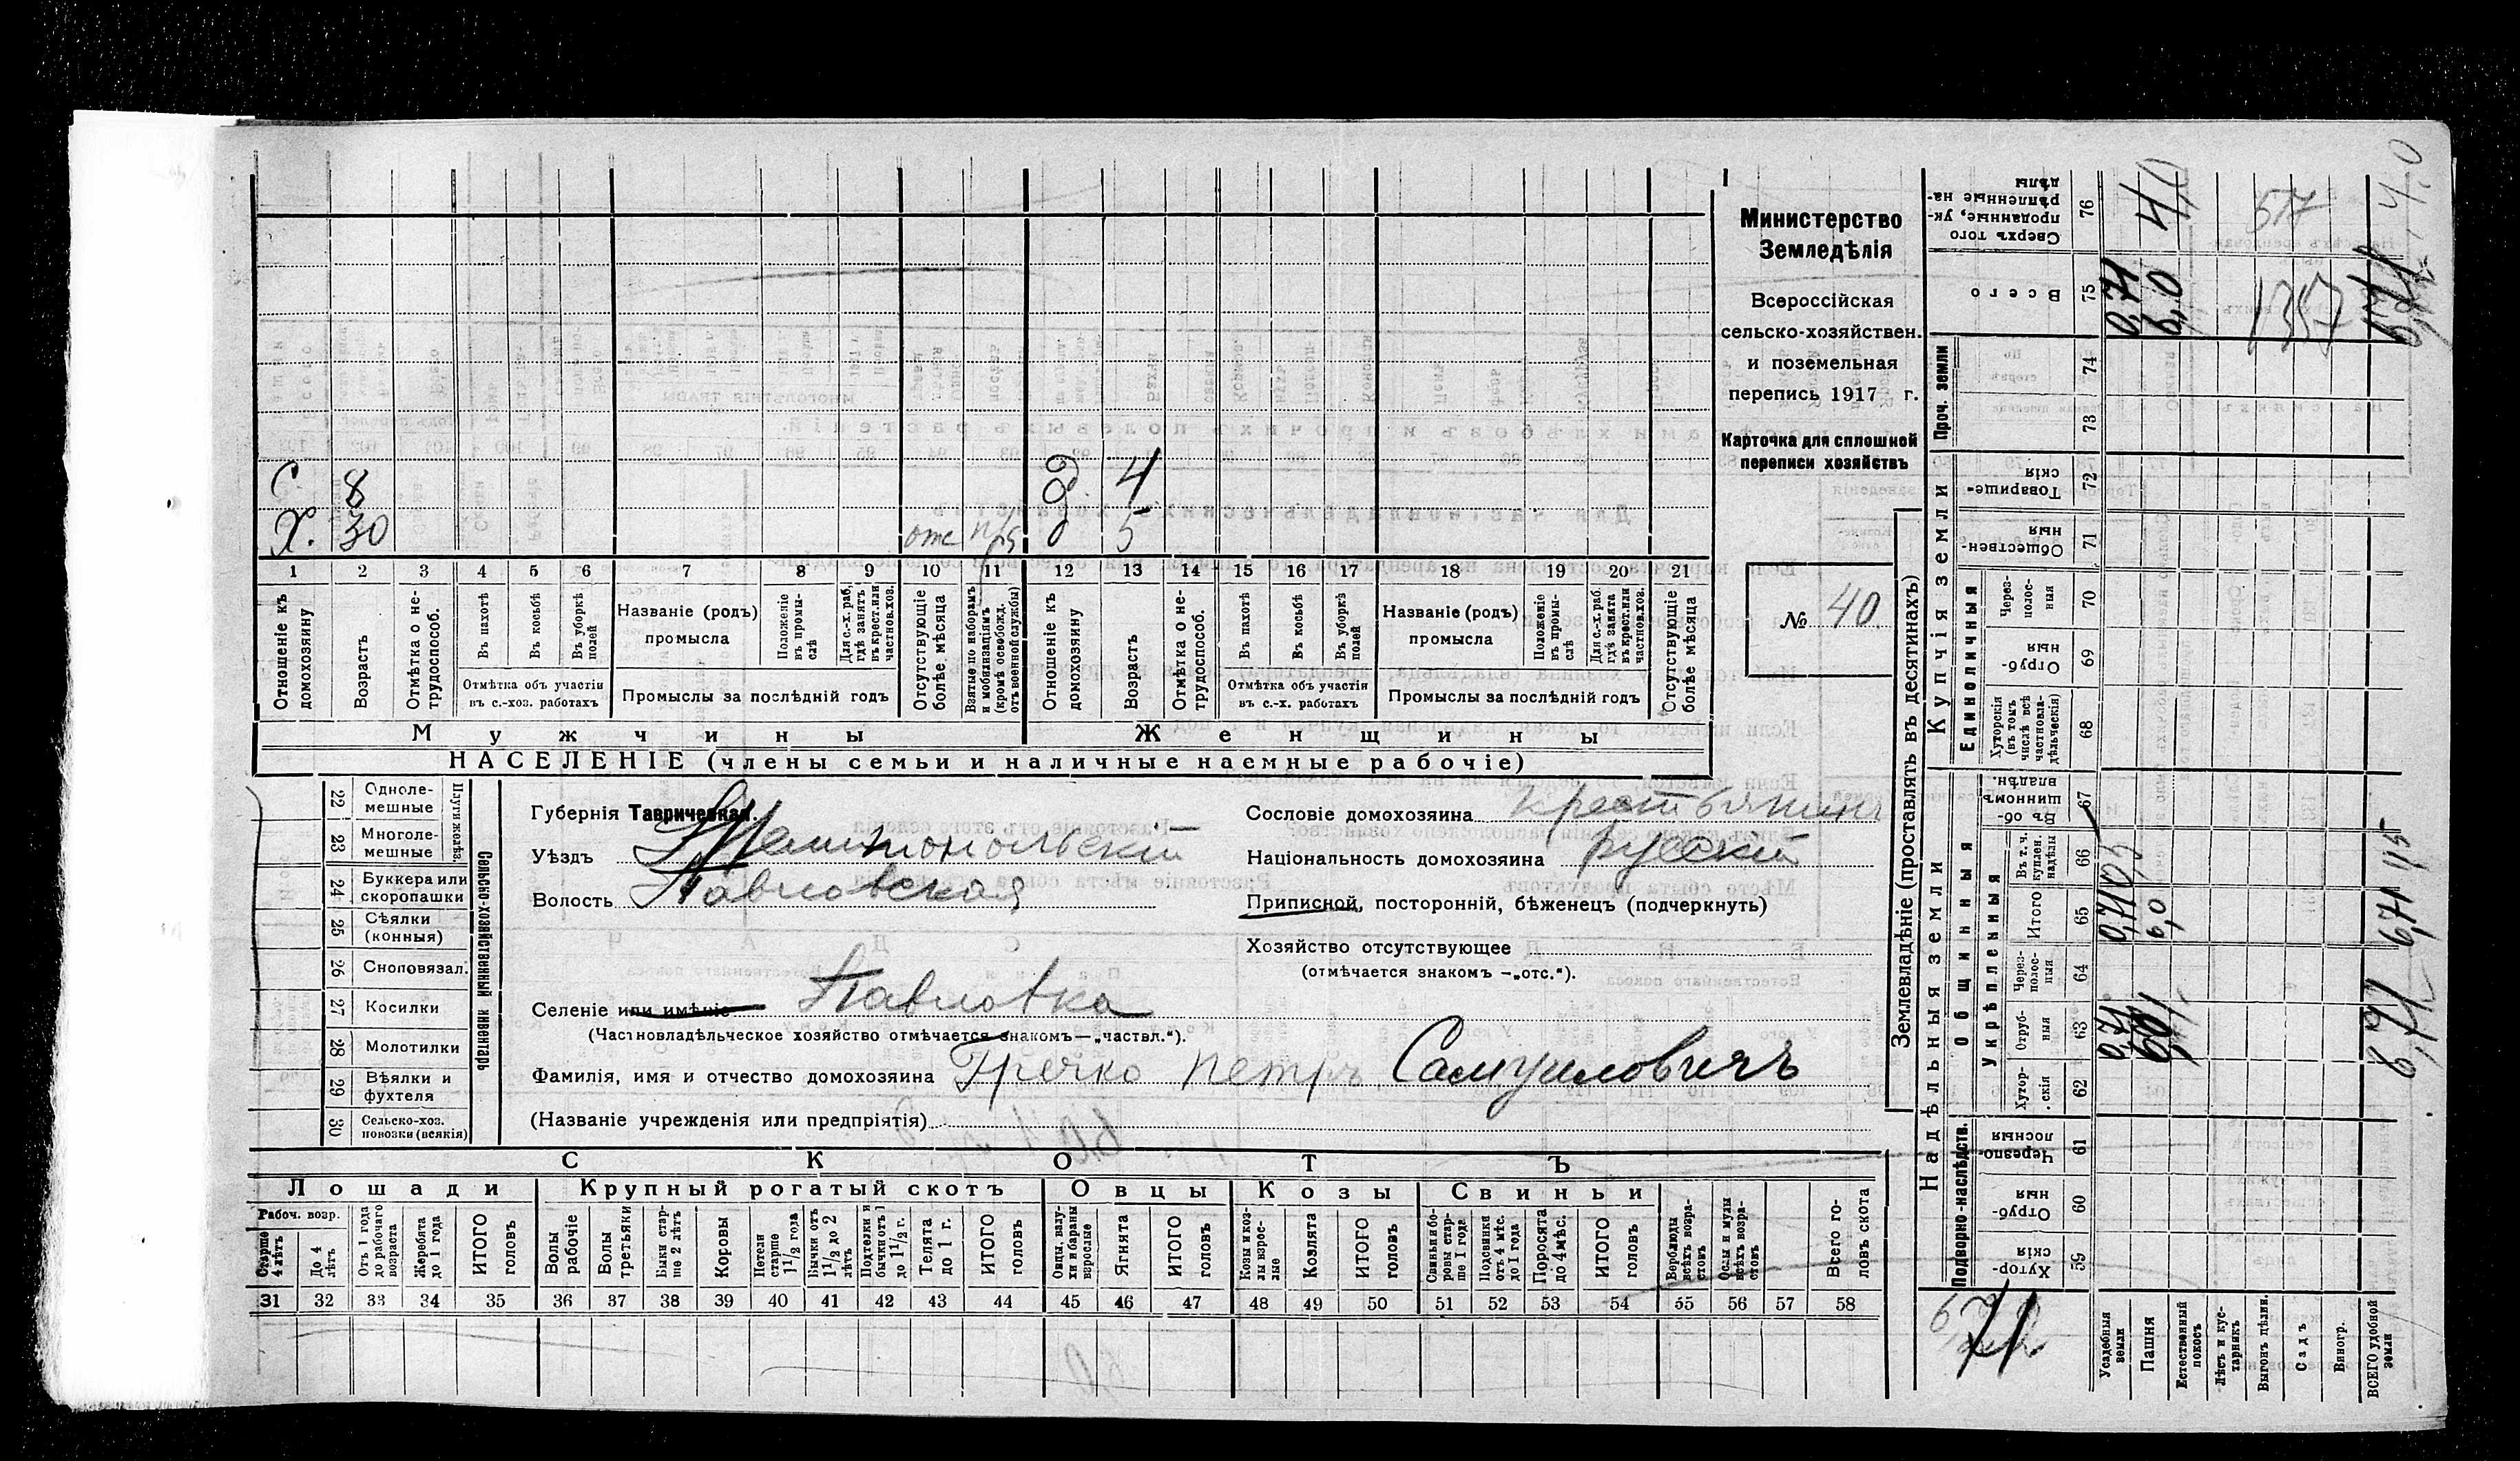 Министерство
Земледѣлія
Всероссійская
сельско-хозяйствен.
и поземельная
перепись 1917 г.
Карточка для сплошной
переписи хозяйствъ
№ 40
С. 8 д. 4
Х. 30 отс д 5
1 2 3 4 5 6 7 8 9 10 11 12 13 14 15 16 17 18 19 20 21
Отношеніе къ домохозяину
Возрастъ
Отмѣтка о не-трудоспособ.
Въ пахотѣ
Въ косьбѣ
Въ уборкѣ полей
Отмѣтка объ участіи
въ с.-хоз. работахъ
Названіе (родъ)
промысла
Положеніе въ промы-слѣ
Для с.-х. раб. гдѣ занятъ въ крест. или частнов. хоз.
Промыслы за послѣдній годъ
Отсутствующіе болѣе мѣсяца
Взятые по наборамъ и мобилизаціямъ (кромѣ освобожд. отъ военной службы)
Отношеніе къ домохозяину
Возрастъ
Отмѣтка о не-трудоспособ.
Въ пахотѣ
Въ косьбѣ
Въ уборкѣ полей
Отмѣтка объ участіи
въ с.-х. работахъ
Названіе (родъ)
промысла
Положеніе въ промы-слѣ
Для с.-х. раб. гдѣ занята въ крест. или частнов. хоз.
Промыслы за послѣдній годъ
Отсутствующіе болѣе мѣсяца
Мужчины Женщины
НАСЕЛЕНІЕ (члены семьи и наличные наемные рабочіе)
22 Одноле-мешные
23 Многоле-мешные
Плуги желѣз.
24 Буккера или скоропашки
25 Сѣялки (конныя)
26 Сноповязал.
27 Косилки
28 Молотилки
29 Вѣялки и фухтеля
30 Сельско-хоз. повозки (всякія)
Сельско-хозяйственный инвентарь
Губернія Таврическая.
Уѣздъ
Волость Павловская
Селеніе или имѣніе Павловка
(Частновладѣльческое хозяйство отмѣчается знакомъ—„частвл.“).
Фамилія, имя и отчество домохозяина Гречко Петръ Самуиловичъ
(Названіе учрежденія или предпріятія)
Сословіе домохозяина крестьянинъ
Національность домохозяина русскій
Приписной, посторонній, бѣженец (подчеркнуть)
Хозяйство отсутствующее
(отмѣчается знакомъ —„отс.“).
СКОТЪ
Лошади Крупный рогатый скотъ Овцы Козы Свиньи
Рабоч. возр.
Старше 4 лѣтъ
До 4 лѣтъ
Отъ 1 года до рабочаго возраста
Жеребята до 1 года
ИТОГО головъ
Волы рабочіе
Волы третьяки
Быки стар-ше 2 лѣтъ
Коровы
Нетели старше 1½ года
Бычки отъ 1½ до 2 лѣтъ
Подтелки и бычки отъ 1 до 1½ г.
Телята до 1 г.
ИТОГО головъ
Овцы, валу-хи и бараны взрослые
Ягнята
ИТОГО головъ
Козы и коз-лы взрос-лые
Козлята
ИТОГО головъ
Свиньи и бо-ровы стар-ше 1 года
Подсвинки отъ 4 мѣс. до 1 года
Поросята до 4 мѣс.
ИТОГО головъ
Верблюды всѣхъ возра-стовъ
Ослы и мулы всѣхъ возра-стовъ
Всего го-ловъ скота
31 32 33 34 35 36 37 38 39 40 41 42 43 44 45 46 47 48 49 50 51 52 53 54 55 56 57 58
Землевладѣніе (проставлять въ десятинахъ)
Надѣльныя земли Купчія земли Проч. земли
Подворно-наслѣдств.
Общинныя
Укрѣпленныя
Единоличныя
Хутор-скія 59
Отруб-ныя 60
Черезпо-лосныя 61
Хутор-скія 62
Отруб-ныя 63
Через-полос-ныя 64
Итого 65
Въ т. ч. куплен. надѣлы 66
Въ об-щинномъ владѣн. 67
Хуторскія (въ томъ числѣ всѣ частновла-дѣльческія) 68
Отруб-ныя 69
Через-полос-ныя 70
Обществен-ныя 71
Товарище-скія 72
73
74
Всего 75
Сверхъ того проданные, ук-рѣпленные на-дѣлы 76
Усадебныя земли 0,71 0,71 0,71
Пашня 6,0 6,0 4,0
Естественный покосъ
Лѣсъ и кус-тарникъ
Выгонъ дѣлин. 1357 517
Садъ
Виногр.
ВСЕГО удобной земли 6,71 6,71 6,71 4,0